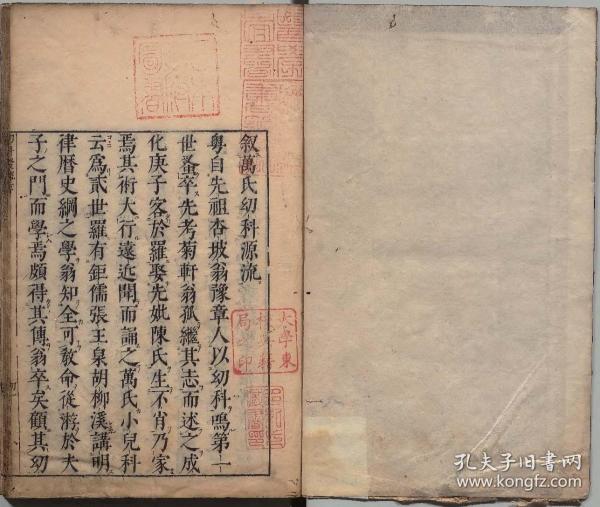 叙萬氏幼科源流
粤自先祖杏坡翁豫章人以幼科鳴第一
世蚤卒先考菊軒翁孤繼其志而述之成
化庚子客於羅娶先妣陳氏生不肖乃家
焉其術大行遠近聞而誦之萬氏小兒科
云爲貳世羅有鉅儒張王泉胡柳溪講明
律曆史綱之學翁知全可教命從游於夫
子之門而學焉頗得其傳翁卒矣顧其幼
大學東
校典籍
局之印
孔夫子旧书网
www.kongfz.com